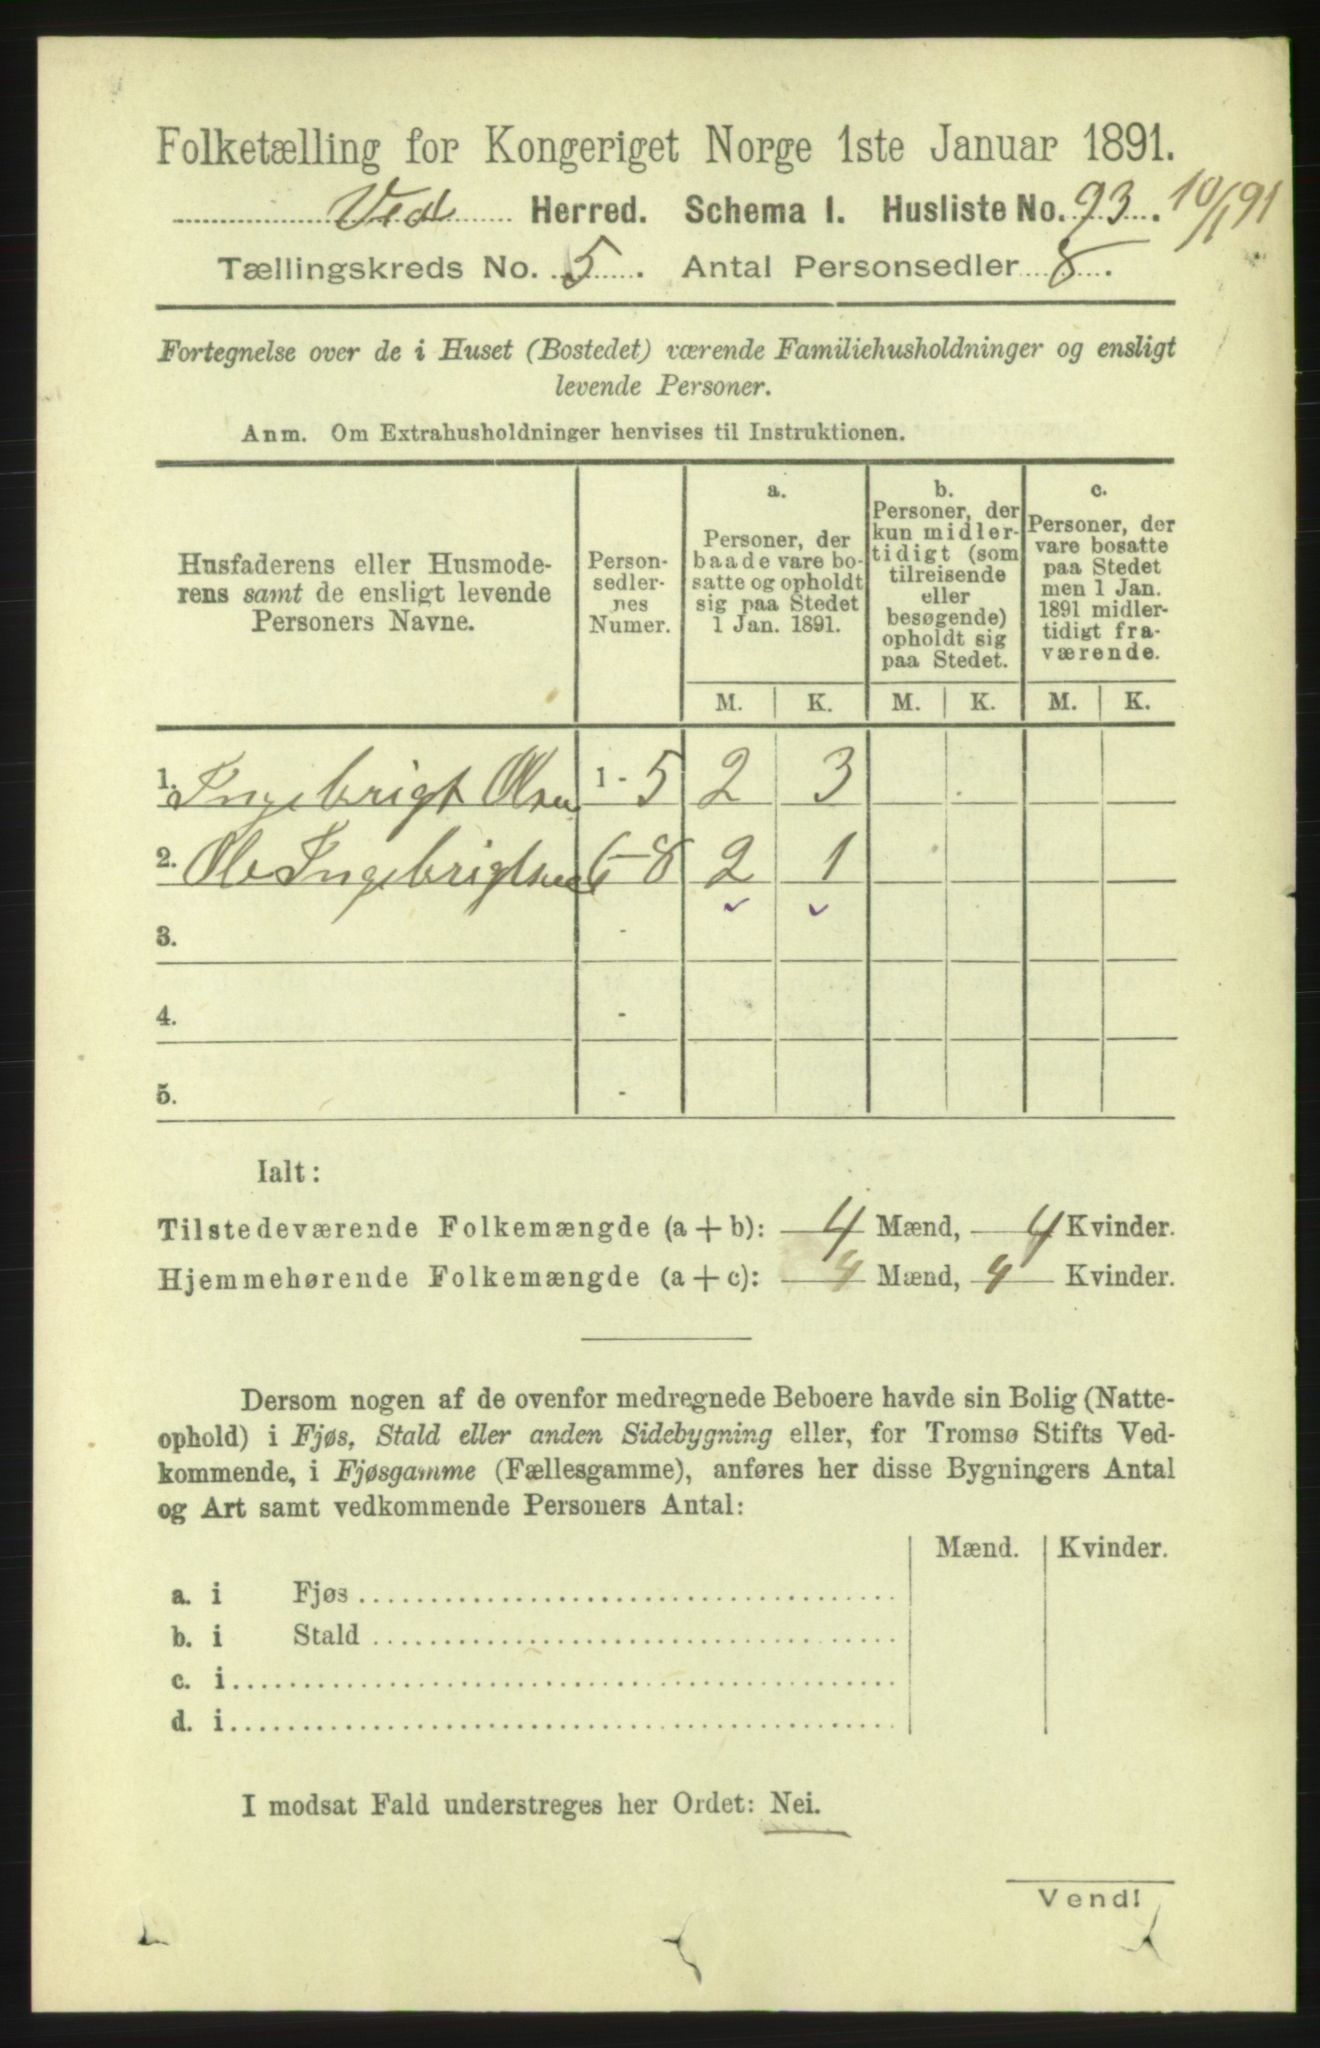 Folketælling for Kongeriget Norge 1ste Januar 1891.
Ved Herred. Schema I. Husliste No. 93. 10/1 91
Tællingskreds No. 5. Antal Personsedler 8.
Fortegnelse over de i Huset (Bostedet) værende Familiehusholdninger og ensligt
levende Personer.
Anm. Om Extrahusholdninger henvises til Instruktionen.
Husfaderens eller Husmode-
rens samt de ensligt levende
Personers Navne.
Person-
sedler-
nes
Numer.
a.
Personer, der
baade vare bo-
satte og opholdt
sig paa Stedet
1 Jan. 1891.
b.
Personer, der
kun midler-
tidigt (som
tilreisende
eller
besøgende)
opholdt sig
paa Stedet.
c.
Personer, der
vare bosatte
paa Stedet
men 1 Jan.
1891 midler-
tidigt fra-
værende.
M. K. M. K. M. K.
1. Ingebrigt Olsen 1 - 5 2 3
2. Ole Ingebrigtsen 6 - 8 2 1
3. -
4. -
5. -
Ialt:
Tilstedeværende Folkemængde (a + b): 4 Mænd, 4 Kvinder.
Hjemmehørende Folkemængde (a + c): 4 Mænd, 4 Kvinder.
Dersom nogen af de ovenfor medregnede Beboere havde sin Bolig (Natte-
ophold) i Fjøs, Stald eller anden Sidebygning eller, for Tromsø Stifts Ved-
kommende, i Fjøsgamme (Fællesgamme), anføres her disse Bygningers Antal
og Art samt vedkommende Personers Antal:
Mænd. Kvinder.
a. i Fjøs
b. i Stald
c. i
d. i
I modsat Fald understreges her Ordet: Nei.
Vend!